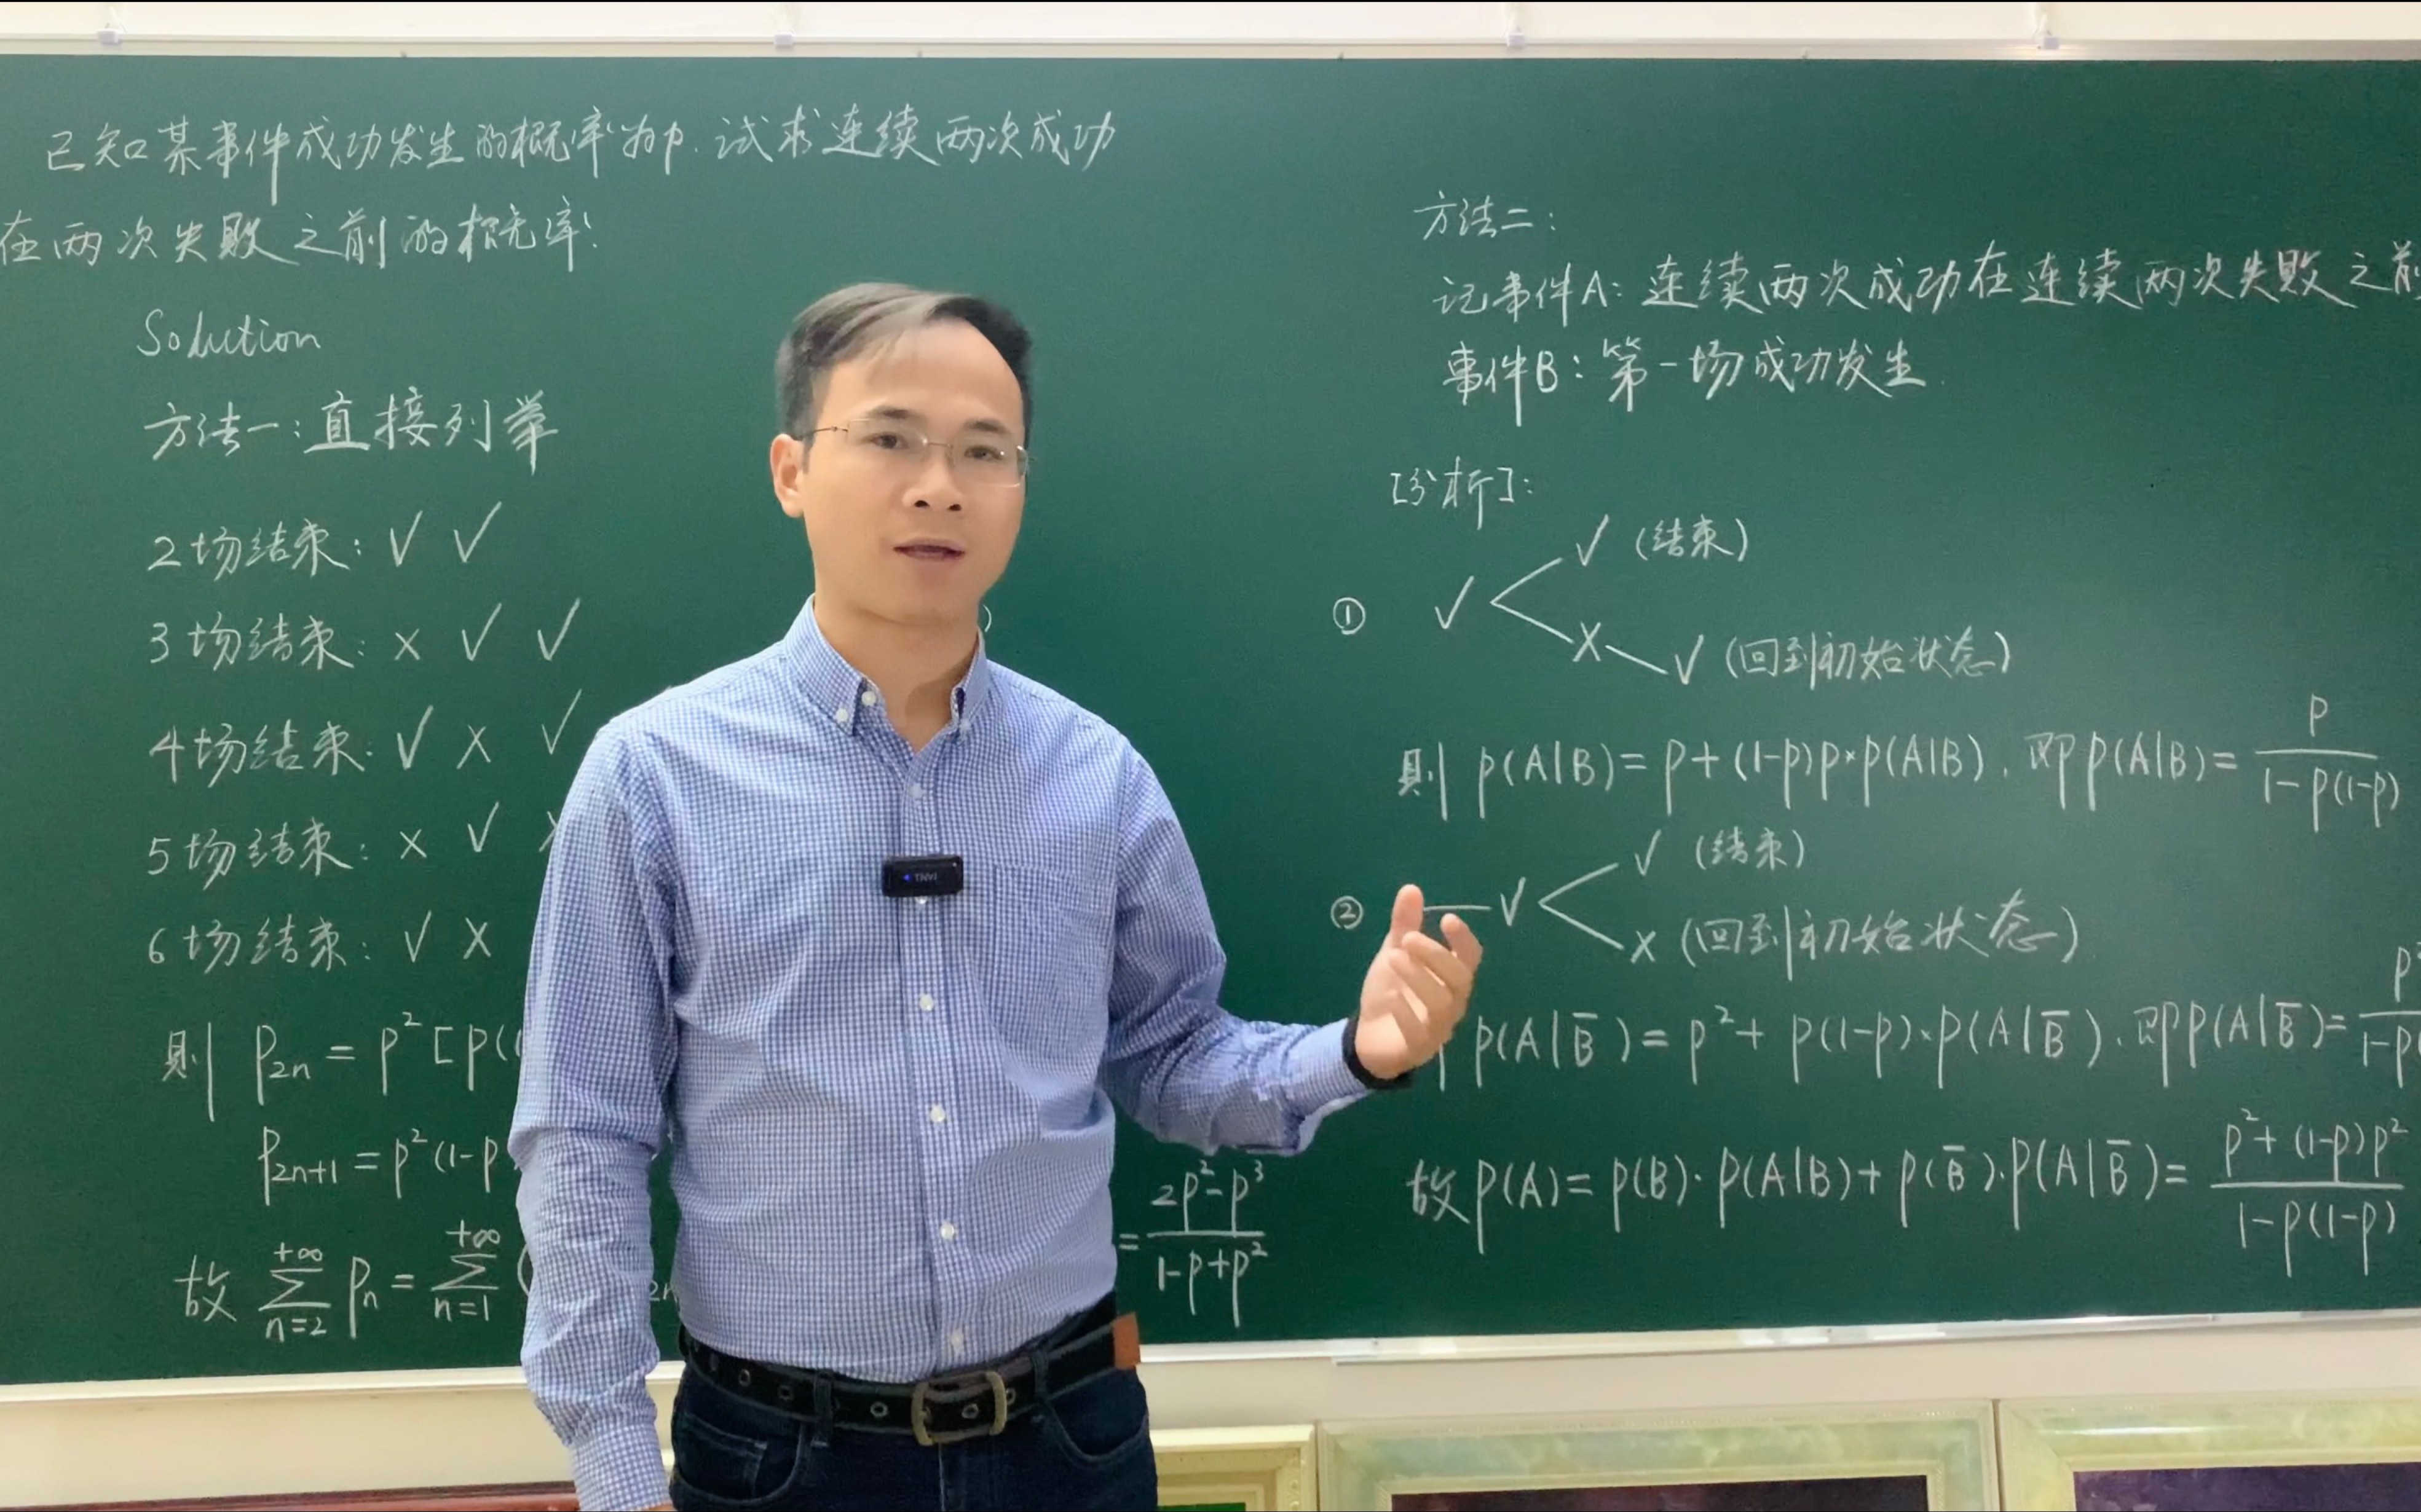 已知某事件成功发生的概率为p.试求连续两次成功
在两次失败之前的概率!
Solution
方法一:直接列举
2场结束: √ √
3场结束: × √ √
4场结束: √ × √
5场结束: × √
6场结束: √ ×
则 p₂ₙ = p²[p(
p₂ₙ₊₁ = p²(1-p
故 ∑_{n=2}^{+∞} pₙ = ∑_{n=1}^{+∞} (
= \frac{2p²-p³}{1-p+p²}
方法二:
记事件A:连续两次成功在连续两次失败之前
事件B:第一场成功发生.
[分析]:
√ (结束)
① √
× √ (回到初始状态)
则 p(A|B)=p+(1-p)p×p(A|B).即p(A|B)=\frac{p}{1-p(1-p)}
√ (结束)
② √
× (回到初始状态)
p(A|B̅)=p²+p(1-p)·p(A|B̅).即p(A|B̅)=
故p(A)=p(B)·p(A|B)+p(B̅)·p(A|B̅)=\frac{p²+(1-p)p²}{1-p(1-p)}